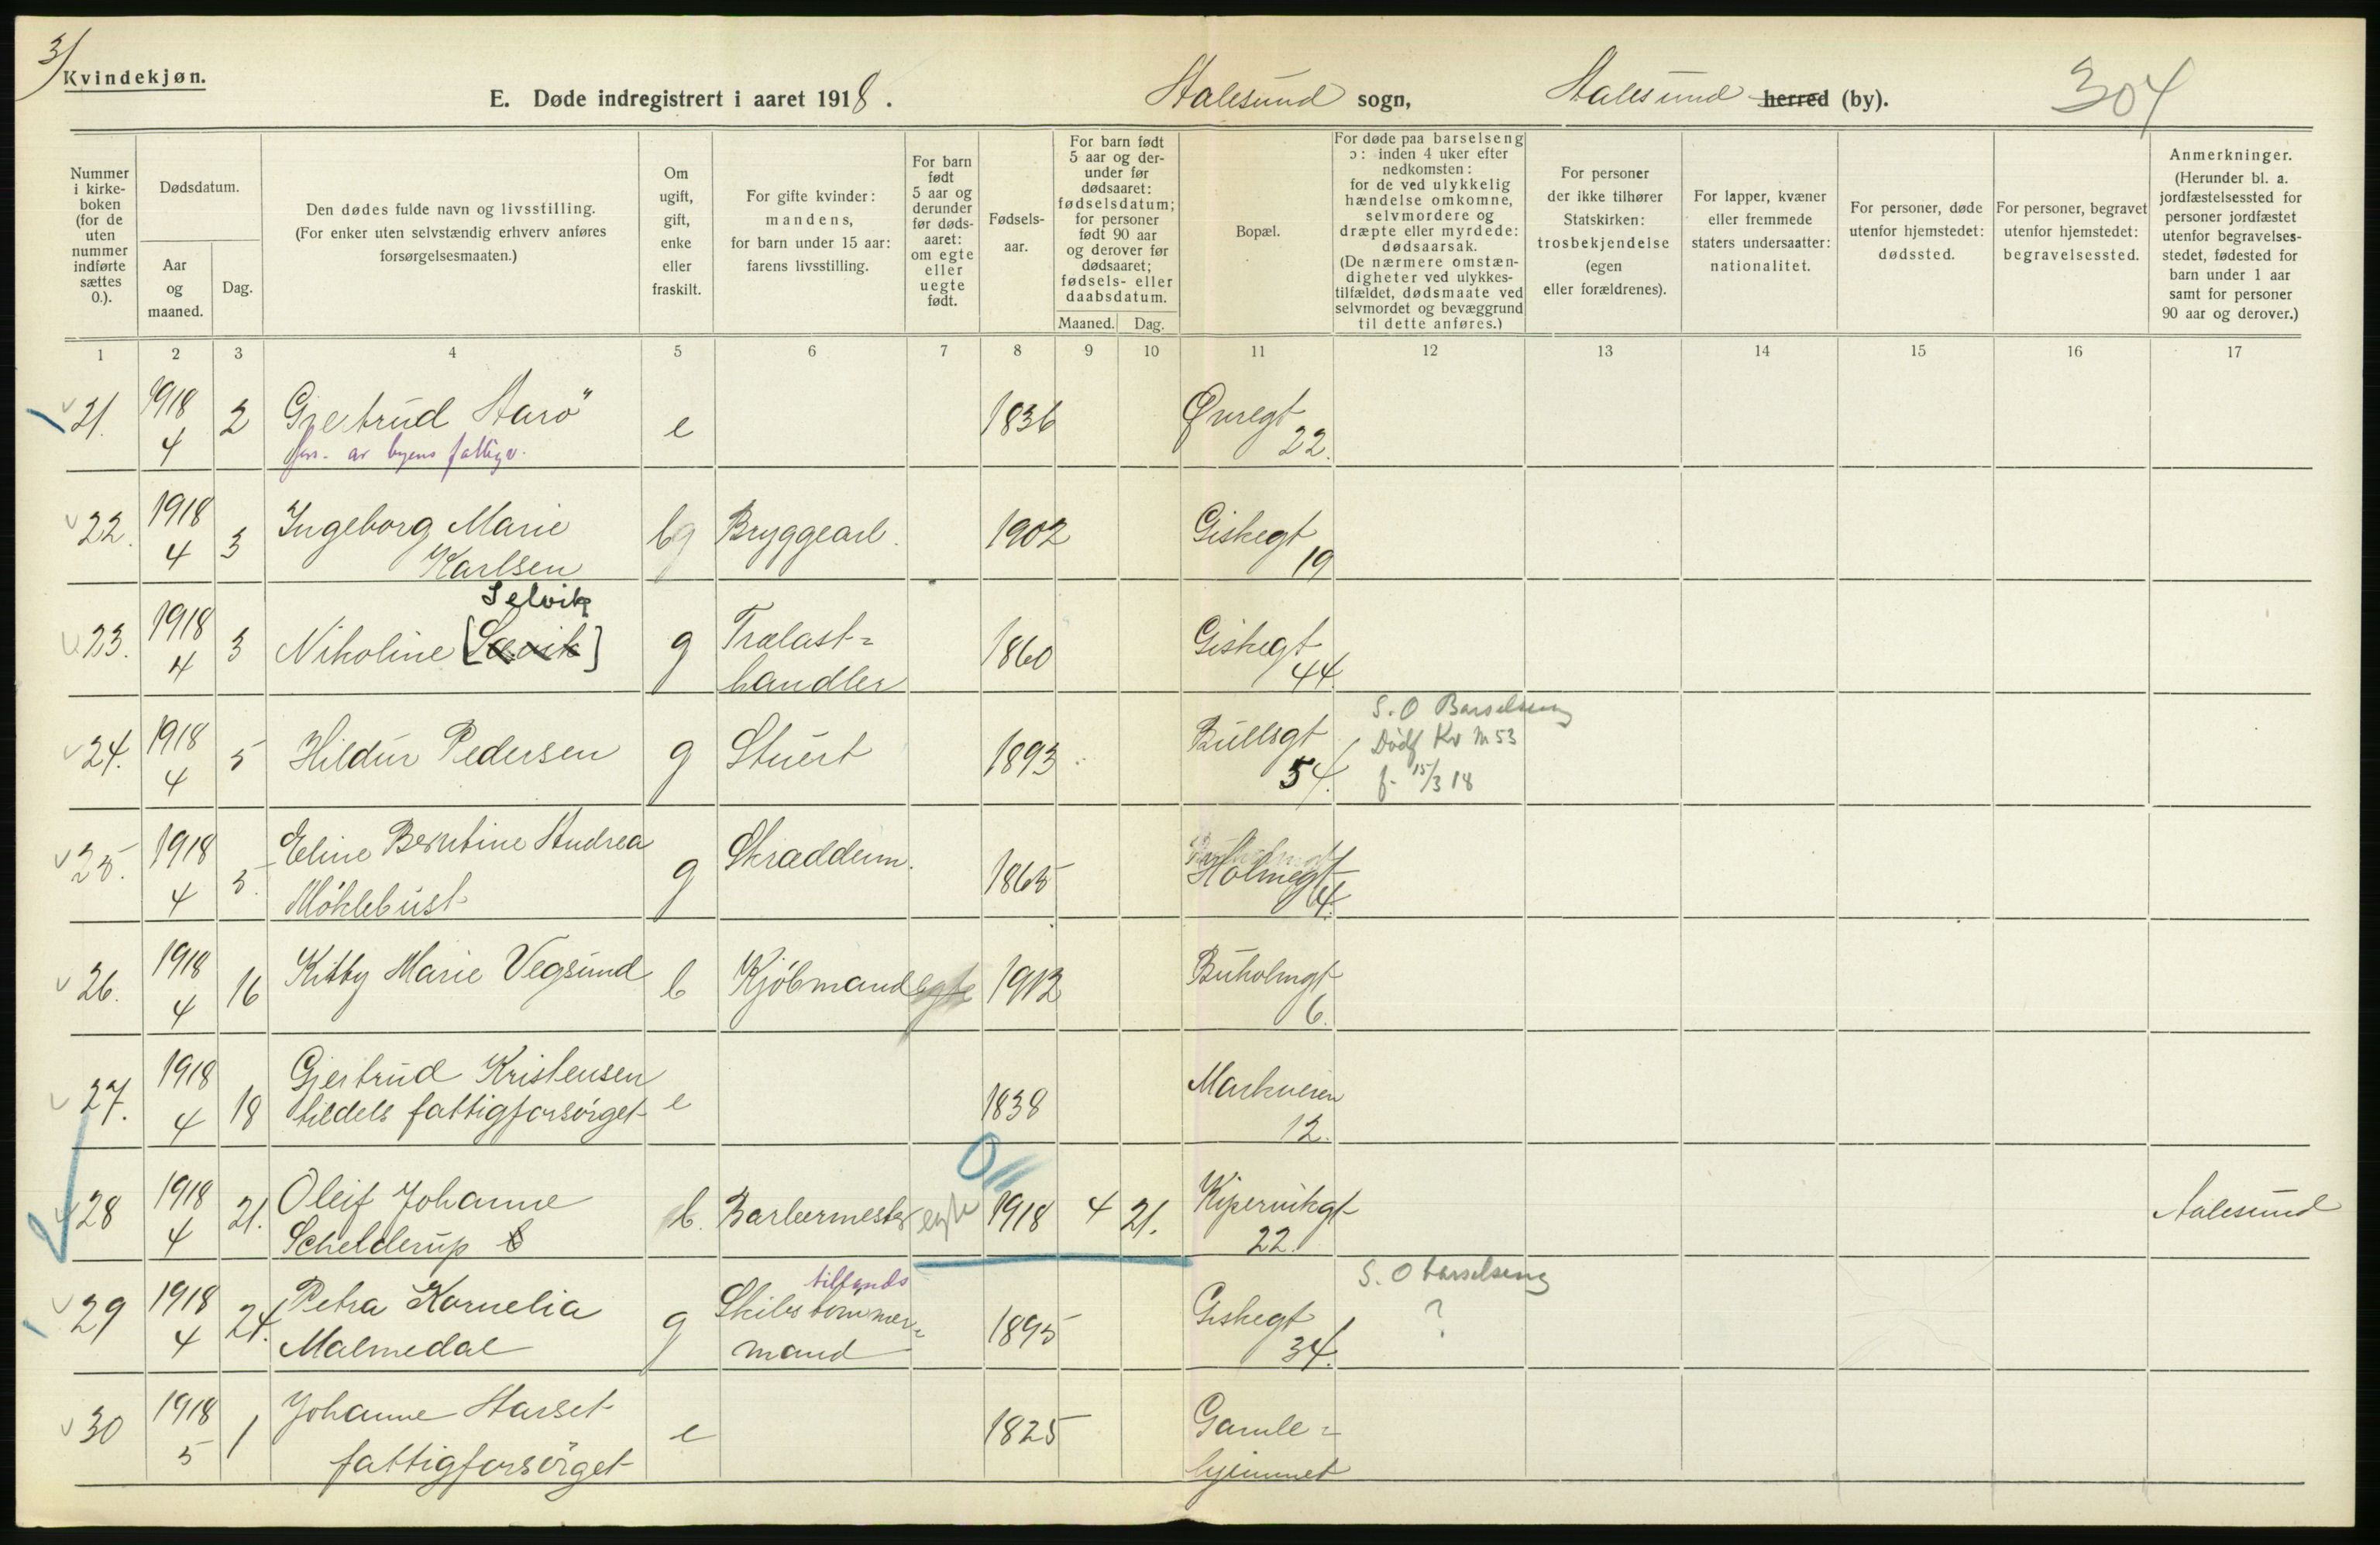 3/
Kvindekjøn.
E. Døde indregistrert i aaret 1918. Aalesund sogn, Aalesund herred (by). 304
Nummer i kirkeboken (for de uten nummer indførte sættes 0.).
Dødsdatum.
Aar og maaned.
Dag.
Den dødes fulde navn og livsstilling.
(For enker uten selvstændig erhverv anføres forsørgelsesmaaten.)
Om ugift, gift, enke eller fraskilt.
For gifte kvinder: mandens, for barn under 15 aar: farens livsstilling.
For barn født 5 aar og derunder før dødsaaret: om egte eller uegte født.
Fødselsaar.
For barn født 5 aar og derunder før dødsaaret: fødselsdatum; for personer født 90 aar og derover før dødsaaret; fødsels- eller daabsdatum.
Maaned. Dag.
Bopæl.
For døde paa barselseng ɔ: inden 4 uker efter nedkomsten: for de ved ulykkelig hændelse omkomne, selvmordere og dræpte eller myrdede: dødsaarsak. (De nærmere omstændigheter ved ulykkestilfældet, dødsmaate ved selvmordet og bevæggrund til dette anføres.)
For personer der ikke tilhører Statskirken: trosbekjendelse (egen eller forældrenes).
For lapper, kvæner eller fremmede staters undersaatter: nationalitet.
For personer, døde utenfor hjemstedet: dødssted.
For personer, begravet utenfor hjemstedet: begravelsessted.
Anmerkninger. (Herunder bl. a. jordfæstelsessted for personer jordfæstet utenfor begravelsesstedet, fødested for barn under 1 aar samt for personer 90 aar og derover.)
1 2 3 4 5 6 7 8 9 10 11 12 13 14 15 16 17
21. 1918 4 2 Gjertrud Aarö e 1836 Øvregt 22.
fors. av byens fattigv.
22. 1918 4 3 Ingeborg Marie Karlsen b g Bryggearb. 1902 Giskegt 19
23. 1918 4 3 Nikoline [Sævik] Selvik g Trælast=handler 1860 Giskegt 44.
24. 1918 4 5 Hildur Pedersen g Stuert 1893 Bullsgt 54. S. O Barselseng
Dødf Kv M 53
f. 15/3 18
25. 1918 4 5. Eline Berntine Andrea Möklebust g Skræddenn. 1865 Holmegt 4.
26. 1918 4 16 Kitty Marie Vegsund b Kjöbmand egte 1912 Buholmgt 6.
27. 1918 4 18 Gjertrud Kristensen
tildels fattigforsörget e 1838 Markveien 12.
28 1918 4 21. Oleif Johanne Schelderup b. Barbermester egte 1918 4 21. Kipervikgt 22. Aalesund
29 1918 4 24. Petra Kornelia Malmedal g Skibstømmer=mand tillands 1895 Giskegt 34. S. O barselseng
?
30 1918 5 1 Johanne Harset
fattigforsörget e 1825 Gamle=hjemmet